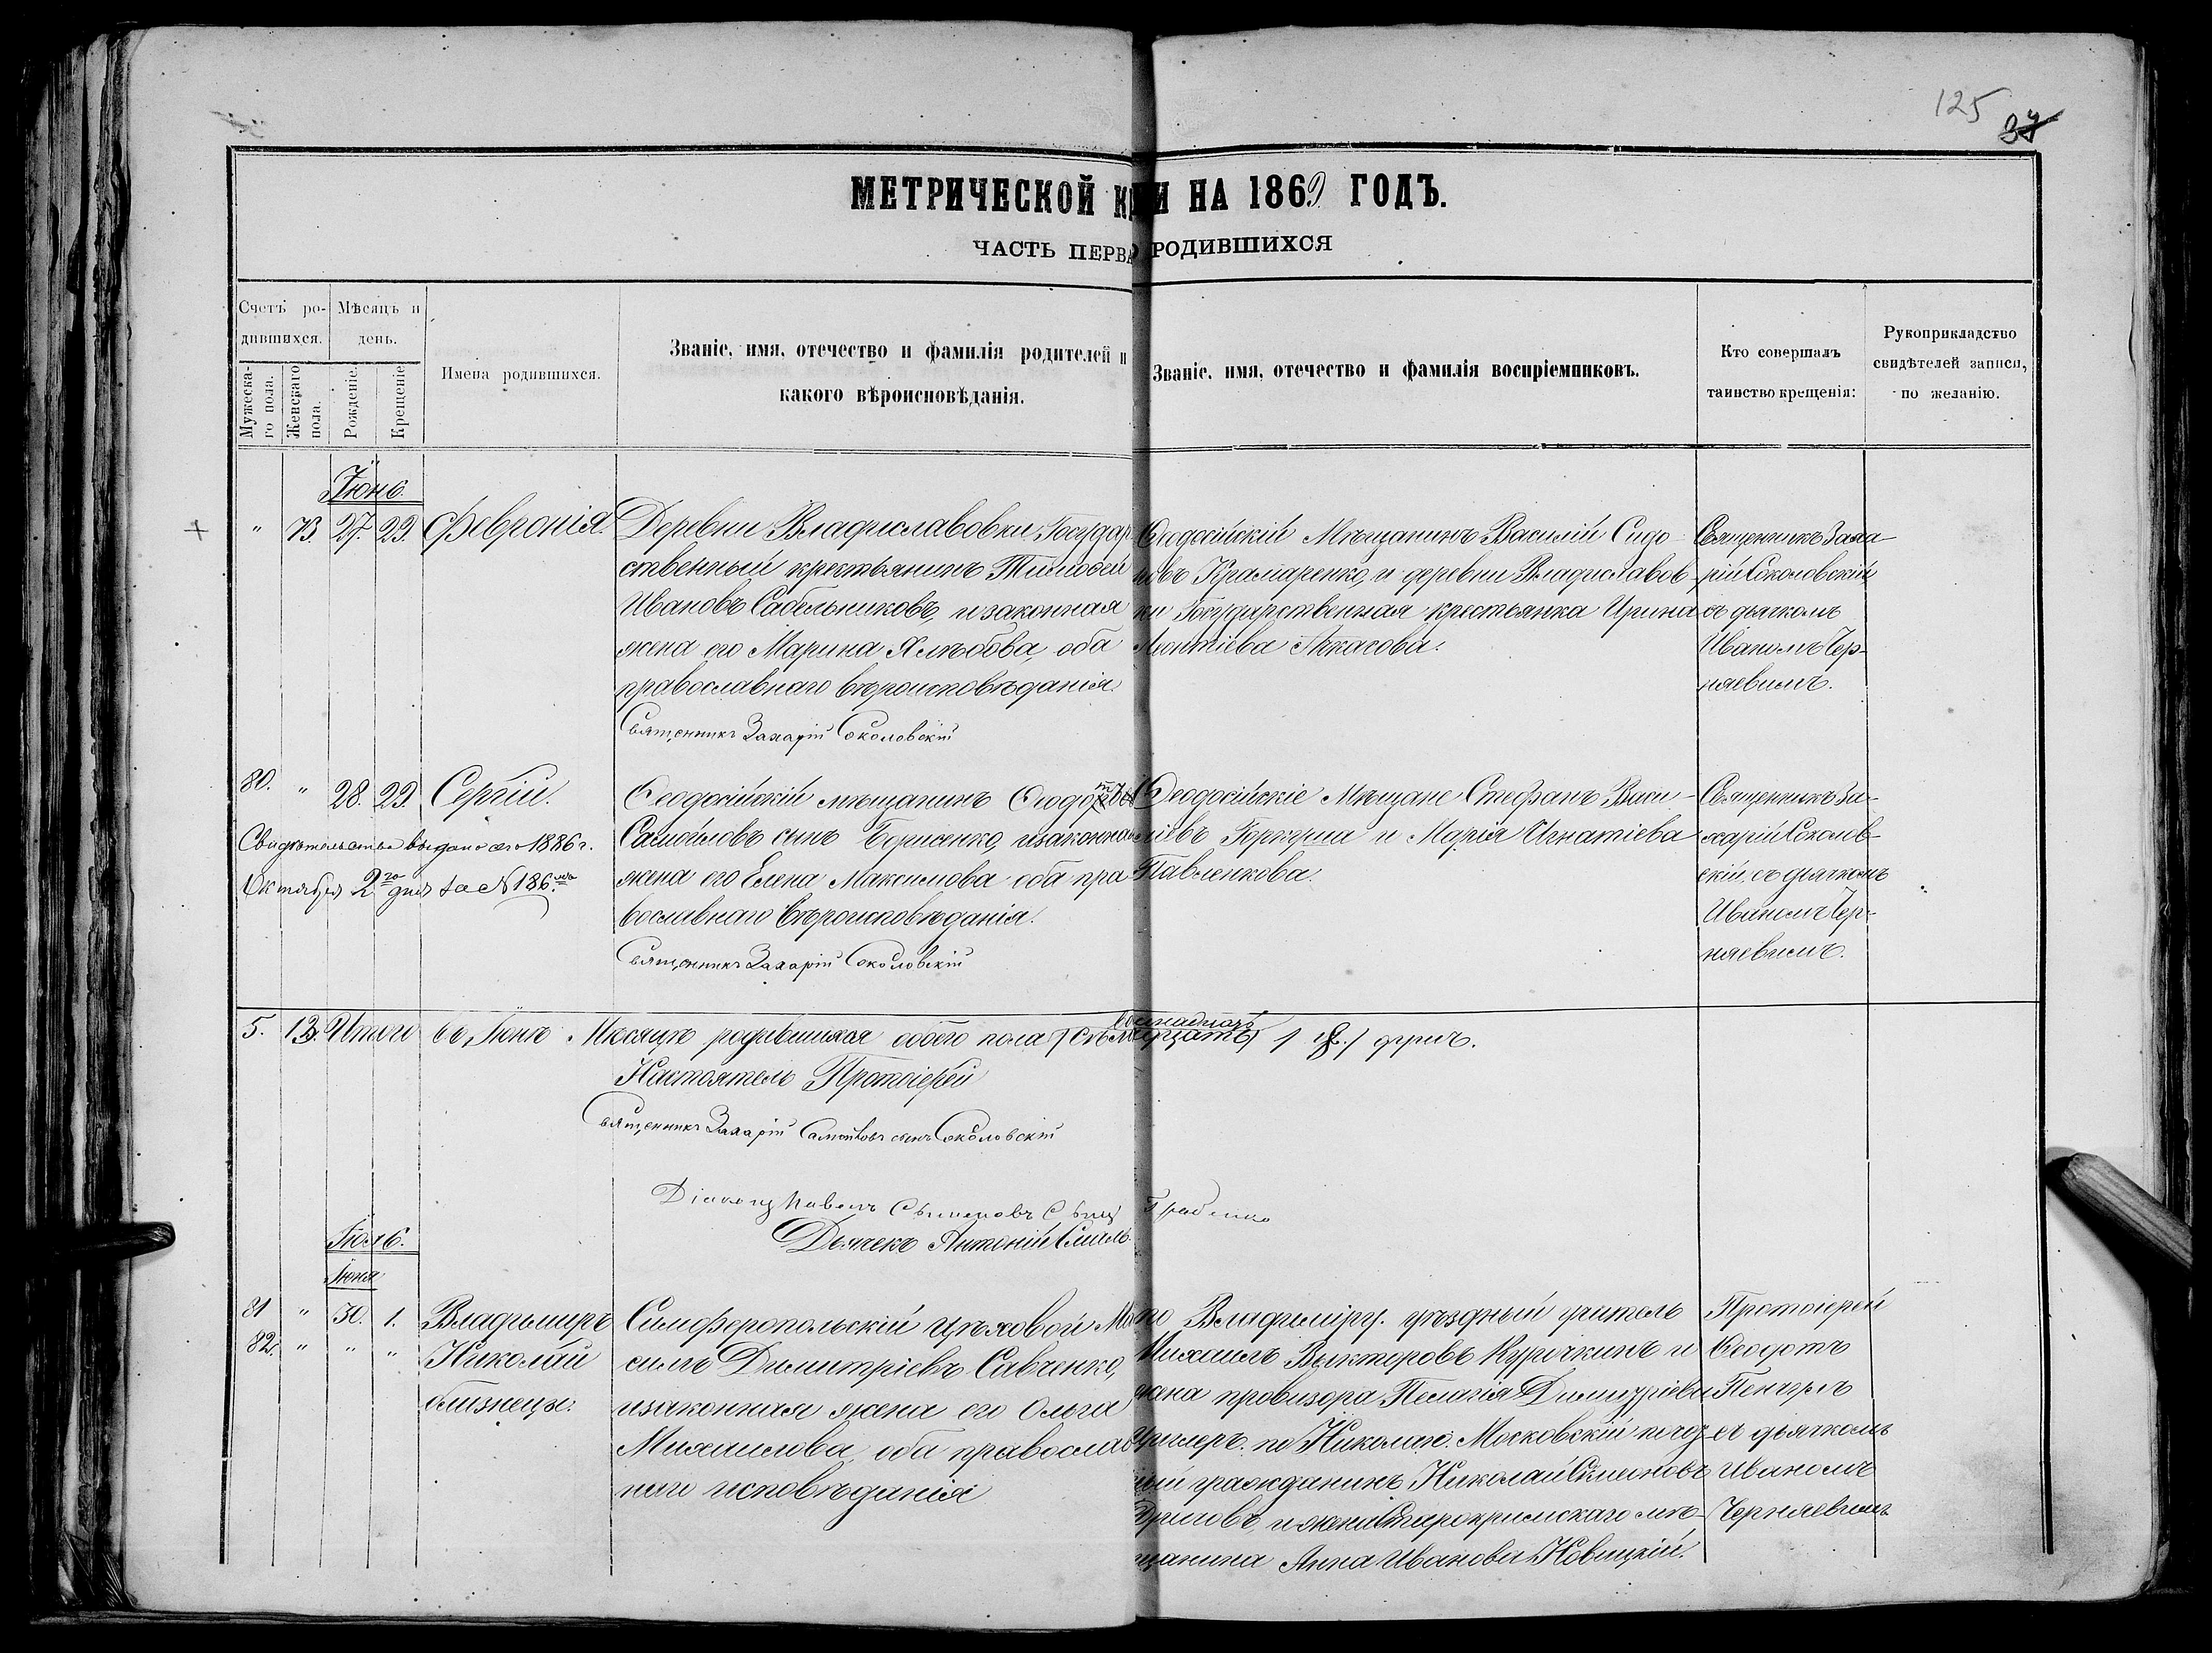 125
37
МЕТРИЧЕСКОЙ К И НА 1869 ГОДЪ.
ЧАСТЬ ПЕРВА РОДИВШИХСЯ
Счетъ ро-
дившихся.
Мѣсяцъ и
день.
Мужеска-
го пола.
Женскаго
пола.
Рожденіе.
Крещеніе
Имена родившихся.
Званіе, имя, отечество и фамилія родителей и
какого вѣроисповѣданія.
Званіе, имя, отечество и фамилія воспріемниковъ.
Кто совершалъ
таинство крещенія:
Рукоприкладство
свидѣтелей записи,
по желанію.
Іюнь.
" 73. 27. 29. Февронія.
Деревни Владиславовки, Государ
ственный крестьянинъ Тимофей
Ивановъ Сабельниковъ, и законная
жена его Марина Глѣбова, оба
православнаго вѣроисповѣданія.
Священникъ Захарій Соколовскій
Ѳеодосійскій Мѣщанинъ Василій Сидо
ровъ Крамаренко, и деревни Владиславов
ки Государственная крестьянка Ирина
Леонтіева
Священникъ Заха
рій Соколовскій
съ дьячкомъ
Иваномъ Чер-
няевымъ.
80. " 28. 29. Сергій.
Свидѣтельство выдано сего 1886 г.
Октября 2го дня за № 186.мъ
Ѳеодосійскій мѣщанинъ
Самойловъ сынъ Борисенко, и законная
жена его Елена Максимова оба пра
вославнаго вѣроисповѣданія.
Священникъ Захарій Соколовскій
Ѳеодосійскіе Мѣщане Стефанъ Васи-
ліевъ и Марія Игнатіева
Павленкова.
Священникъ За-
харій Соколов-
скій, съ дьячкомъ
Иваномъ Чер-
няевымъ.
5. 13. Итого въ Іюнѣ Мѣсяцѣ родившихся обоего пола восемнадцать / 18 / душъ.
Настоятель Протоіерей
Священникъ Захарій Самойловъ сынъ Соколовскій
Діаконъ Павелъ Сѵмеоновъ Сынъ
Дьячекъ Антоній
Іюль.
Іюня
81 " 30. 1. Владиміръ
82. " " " Николай
близнецы.
Симферопольскій цѣховой Ма
симъ Димитріевъ Савченко,
и законная жена его Ольга
Михаилова, оба православ
наго исповѣданія
по Владиміру. уѣздный учитель
Михаилъ Викторовъ Куричкинъ и
жена провизора Пелагія Димитріева
по Николаю. Московскій почод
ный гражданинъ Николай Сѵмеоновъ
и жена Старокрымскаго мѣ-
щанина Анна Иванова Новицкій.
Протоіерей
Ѳеодотъ
съ дьячкомъ
Иваномъ
Черняевымъ